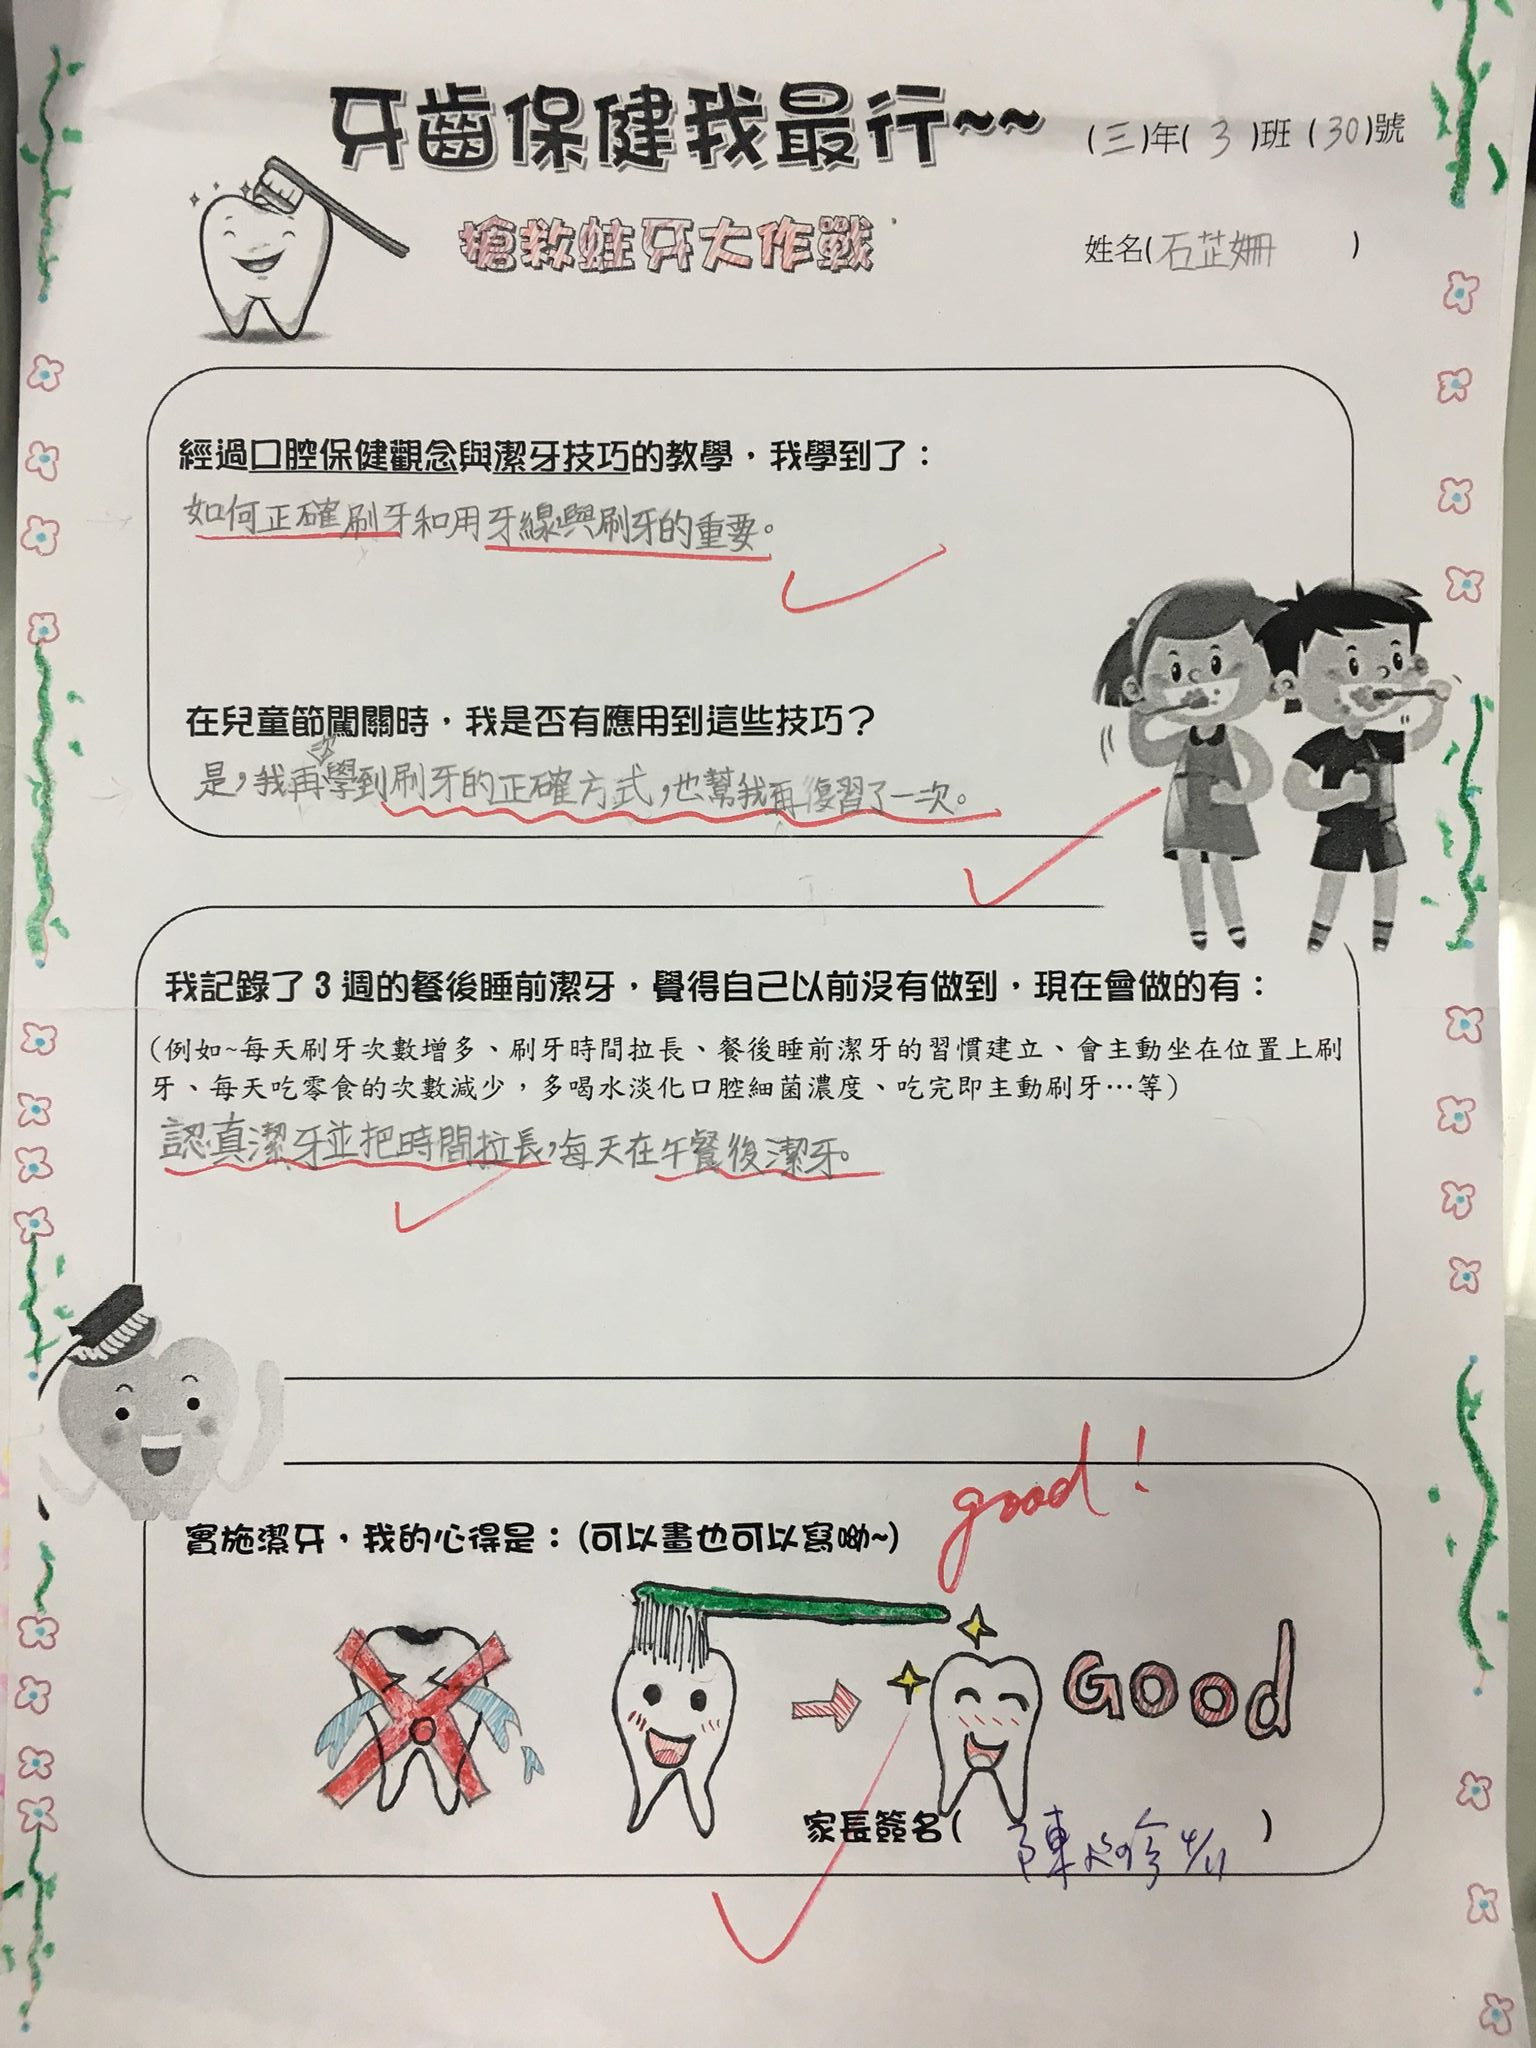 牙齒保健我最行~~
(三)年(3)班(30)號
搶救蛀牙大作戰
姓名(石芷姍)
經過口腔保健觀念與潔牙技巧的教學，我學到了：
如何正確刷牙和用牙線與刷牙的重要。
在兒童節闖關時，我是否有應用到這些技巧？
是，我再次學到刷牙的正確方式，也幫我再復習了一次。
我記錄了3週的餐後睡前潔牙，覺得自己以前沒有做到，現在會做的有：
(例如~每天刷牙次數增多、刷牙時間拉長、餐後睡前潔牙的習慣建立、會主動坐在位置上刷
牙、每天吃零食的次數減少，多喝水淡化口腔細菌濃度、吃完即主動刷牙…等)
認真潔牙並把時間拉長，每天在午餐後潔牙。
good!
實施潔牙，我的心得是：(可以畫也可以寫呦~)
Good
家長簽名(陳 4/11)